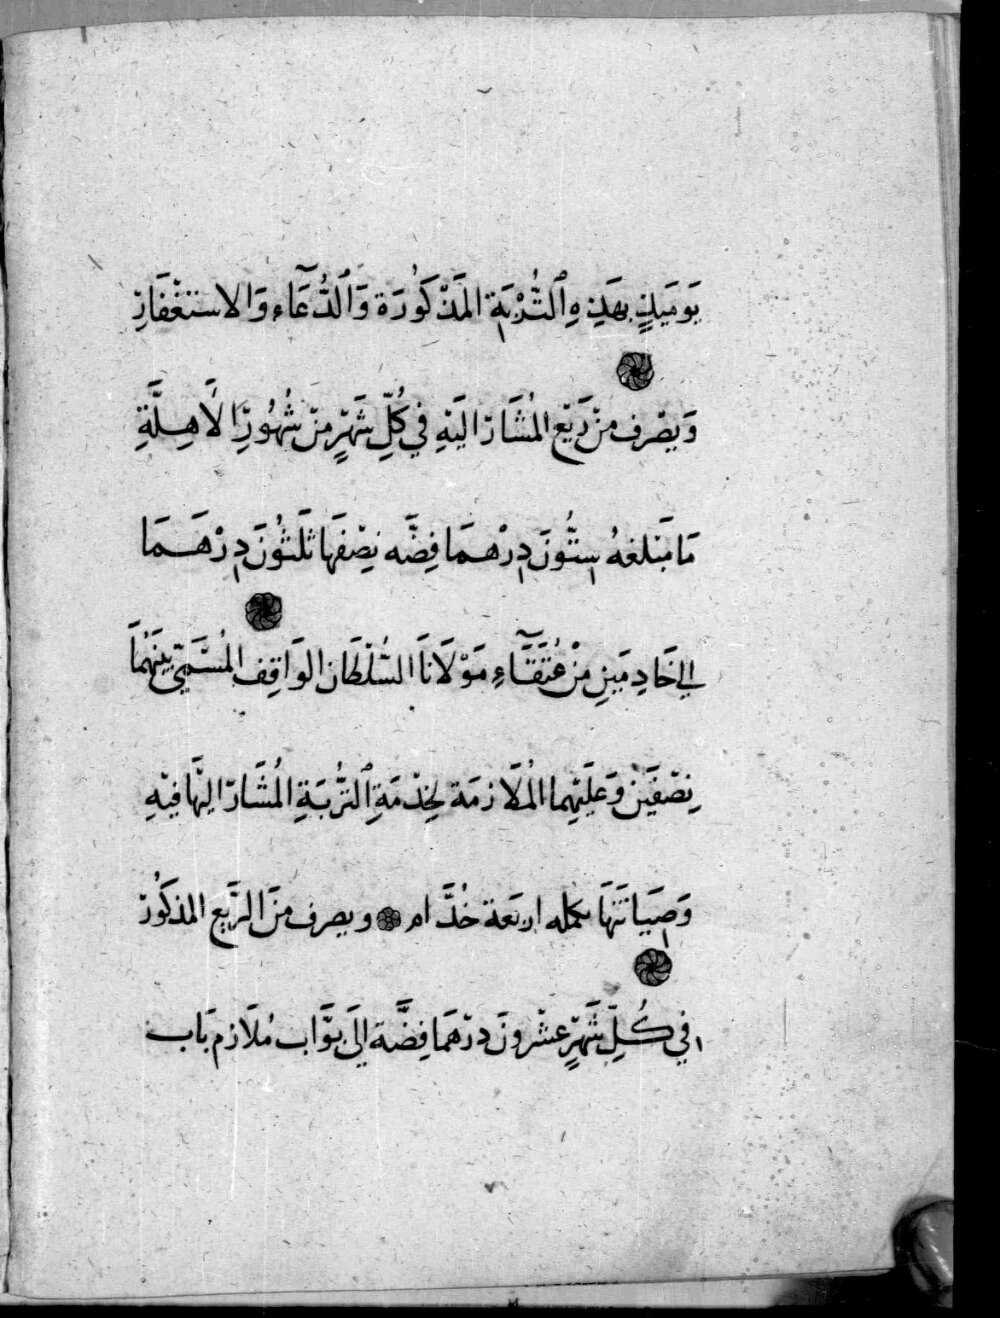 يَوْمَيْنِ بِهَذِهِ ٱلتُّرْبَةِ المَذْكُورَة وَٱلدُّعَآءِ وَالاسْتِغْفَارِ
وَيُصْرَف مِنْ رَيْعِ المُشَارِ اليْهِ فِي كُلِّ شَهْرٍ مِنْ شُهُورِ الأَهِلَّةِ
مَا مَبْلغهُ سِتُّونَ دِرْهَمَا فِضَّه نِصْفهَا ثَلَثُونَ دِرْهَمَا
إلي خَادِمَيْنِ مِنْ عُتَقَآءِ مَوْلَانَا السُّلْطَان الوَاقِفِ المُسَمَّى بَيْنَهُمَا
نِصْفَيْنِ وَعَلَيْهِمَا المُلَازمَة لِخِدْمَةِ ٱلتُّرْبَةِ المُشَارِ اليْهَا فِيْهِ
وَصِيَانَتهَا بكمله اربَعة خُدَّام ويصرف مِنَ الرَّيْع المذكُوْرِ
في كُلِّ شَهْرٍ عِشْرونَ دِرْهَمَا فِضَّة الَى بوَّاب مُلَازم بَاب